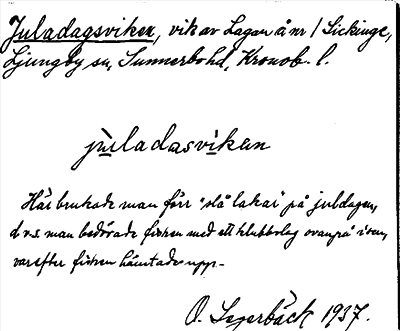 Juladagsviken, vik av Lagan å nr 1 Sickinge,
Ljungby sn, Sunnerbo hd, Kronob. l.
juladasviken
Här brukade man förr "slå lakar" på juldagen,
d.v.s. man bedövade fisken med ett klubbslag ovanpå isen,
varefter fisken hämtades upp. -
O. Sagerbäck 1937.